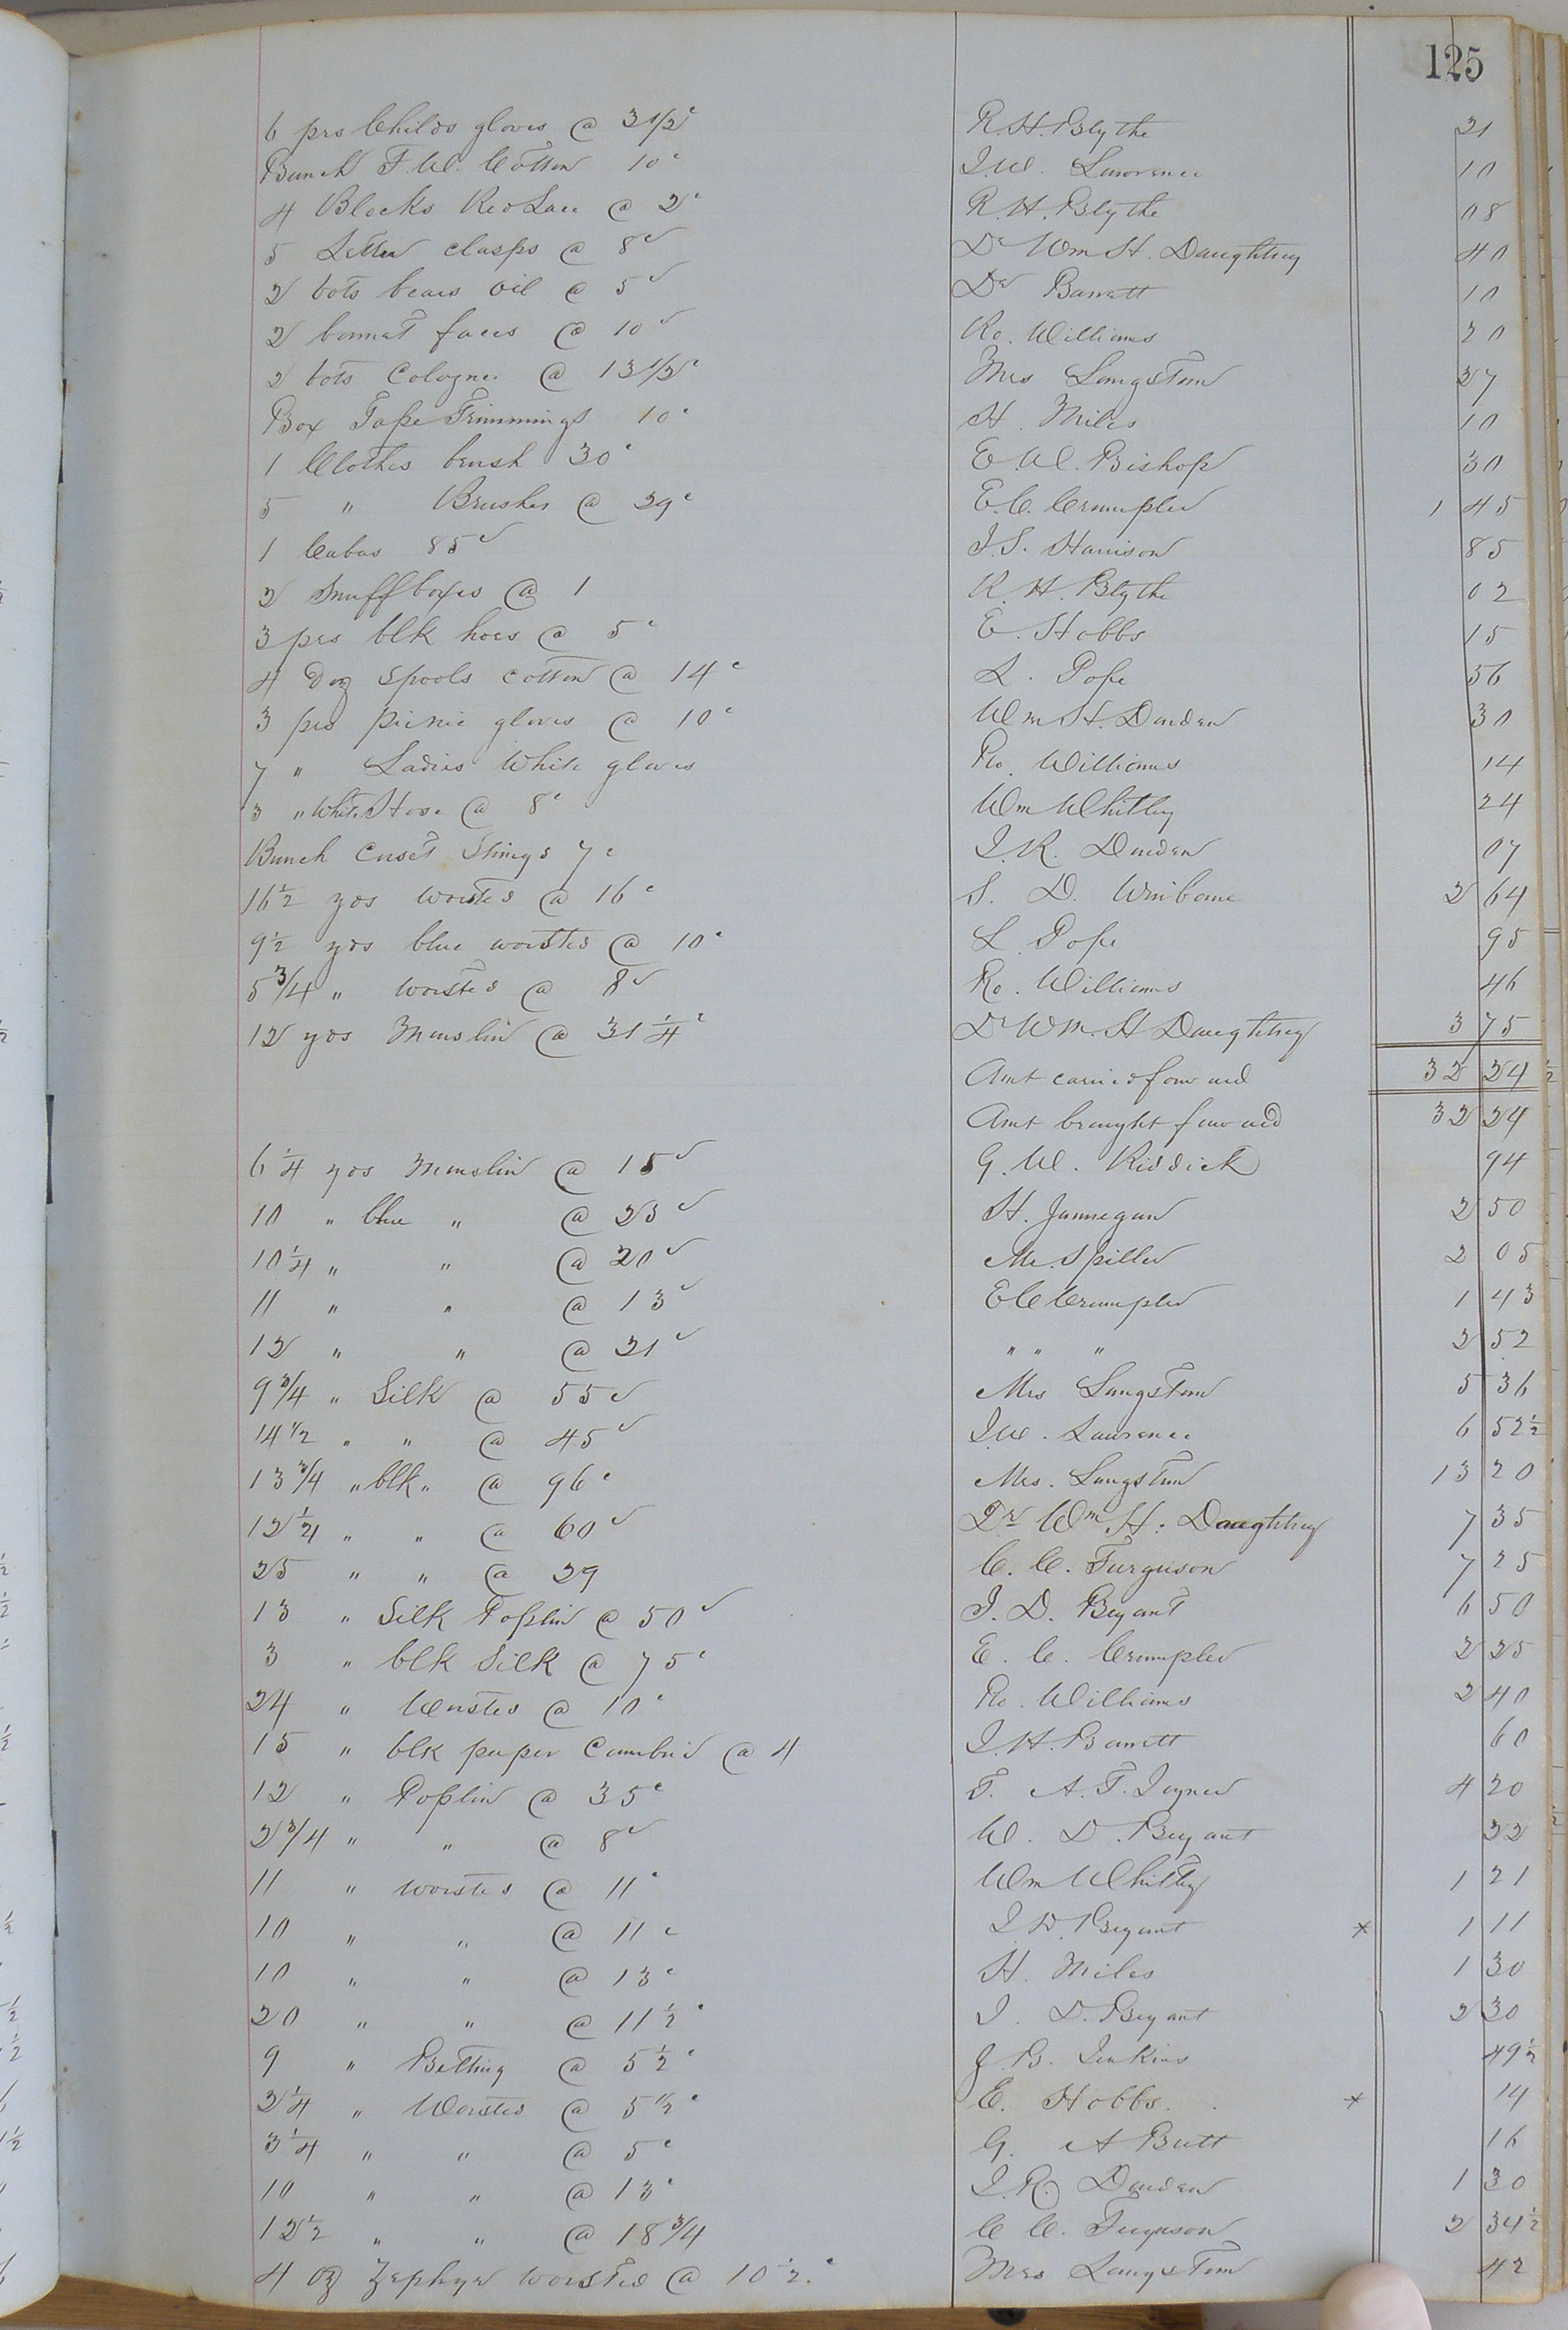 125
6 prs Childs gloves @ 3 1/2c R. H. Blythe 21
Bunch F. W. Cotton 10c J. W. Lawrence 10
4 Blocks Red Lace @ 2c R. H. Blythe 08
5 Letter clasps @ 8c Dr Wm H. Daughtrey 40
2 bots bears oil @ 5c Dr Barrett 10
2 bonnet faces @ 10c Ro. Williams 20
2 bots Cologne @ 13 1/2c Mrs Langston 27
Box Tape Trimmings 10c H. Miles 10
1 Clothes brush 30c E. W. Bishop 30
5 " Brushes @ 29c E. C. Crumpler 1 45
1 Cabas 85c J. S. Harrison 85
2 Snuff boxes @ 1 R. H. Blythe 02
3 prs blk hoes @ 5c E. Hobbs 15
4 Doz Spools cotton @ 14c L. Pope 56
3 prs picnic gloves @ 10c Wm H. Darden 30
7 " Ladies White gloves Ro. Williams 14
3 " White Hose @ 8c Wm Whitley 24
Bunch Corset Strings 7c J. R. Darden 07
16 1/2 yds worsted @ 16c S. D. Winborne 2 64
9 1/2 yds blue worsted @ 10c L. Pope 95
5 3/4 " worsted @ 8c Ro. Williams 46
12 yds Muslin @ 31 1/4c Dr Wm. H Daughtrey 3 75
Amt carried forward 32 24 1/2
Amt brought forward 32 24
6 1/4 yds Muslin @ 15c G. W. Riddick 94
10 " blue " @ 25c H. Jannegan 2 50
10 1/4 " " @ 20c M. Spiller 2 05
11 " " @ 13c E C Crumpler 1 43
12 " " @ 21c " " " 2 52
9 3/4 " Silk @ 55c Mrs Langston 5 36
14 1/2 " " @ 45c J. W. Lawrence 6 52 1/2
13 3/4 " blk " @ 96c Mrs. Langston 13 20
12 1/4 " " @ 60c Dr Wm H. Daughtrey 7 35
25 " " @ 29 C. C. Furguson 7 25
13 " Silk Poplin @ 50c J. D. Bryant 6 50
3 " blk Silk @ 75c E. C. Crumpler 2 25
24 " Worsted @ 10c Ro. Williams 2 40
15 " blk paper Cambric @ 4 J. H. Barrett 60
12 " Poplin @ 35c T. A. T. Joyner 4 20
2 3/4 " " @ 8c W. D. Bryant 22
11 " worsted @ 11c Wm Whitley 1 21
10 " " @ 11c J. D. Bryant x 1 11
10 " " @ 13c H. Miles 1 30
20 " " @ 11 1/2c J. D. Bryant 2 30
9 " Belting @ 5 1/2c J B. Jenkins 49 1/2
2 1/4 " Worsted @ 5 1/2c E. Hobbs. x 14
3 1/4 " " @ 5c G. A Butt 16
10 " " @ 13c J. R. Darden 1 30
12 1/2 " " @ 18 3/4 C C. Furguson 2 34 1/2
4 oz Zephyr worsted @ 10 1/2.c Mrs Langston 42